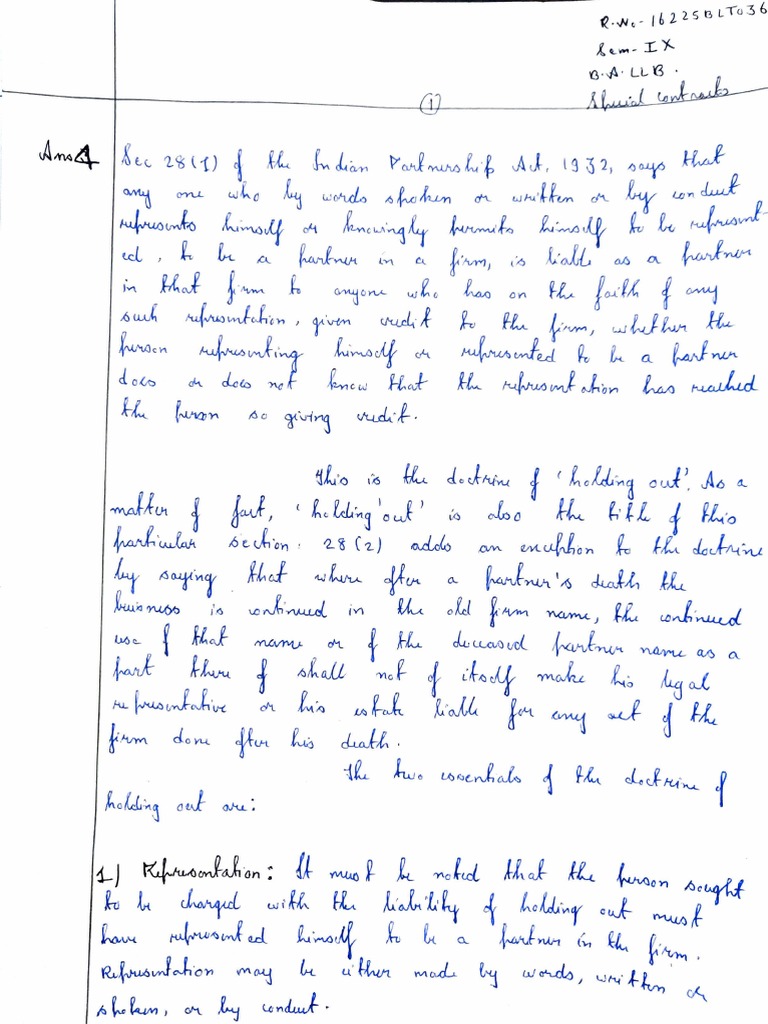 R.No- 16225BLT036
Sem- IX
B.A. LLB.
Special contracts
1
Ans 1 Sec 28(1) of the Indian Partnership Act, 1932, says that
any one who by words spoken or written or by conduct
represents himself or knowingly permits himself to be represent-
ed, to be a partner in a firm, is liable as a partner
in that firm to anyone who has on the faith of any
such representation, given credit to the firm, whether the
person representing himself or represented to be a partner
does or does not know that the representation has reached
the person so giving credit.
This is the doctrine of 'holding out'. As a
matter of fact, 'holding out' is also the title of this
particular section. 28(2) adds an exception to the doctrine
by saying that where after a partner's death the
buisness is continued in the old firm name, the continued
use of that name or of the deceased partner name as a
part there of shall not of itself make his legal
representative or his estate liable for any act of the
firm done after his death.
The two essentials of the doctrine of
holding out are:
1) Representation: It must be noted that the person sought
to be charged with the liability of holding out must
have represented himself to be a partner in the firm.
Representation may be either made by words, written or
spoken, or by conduct.